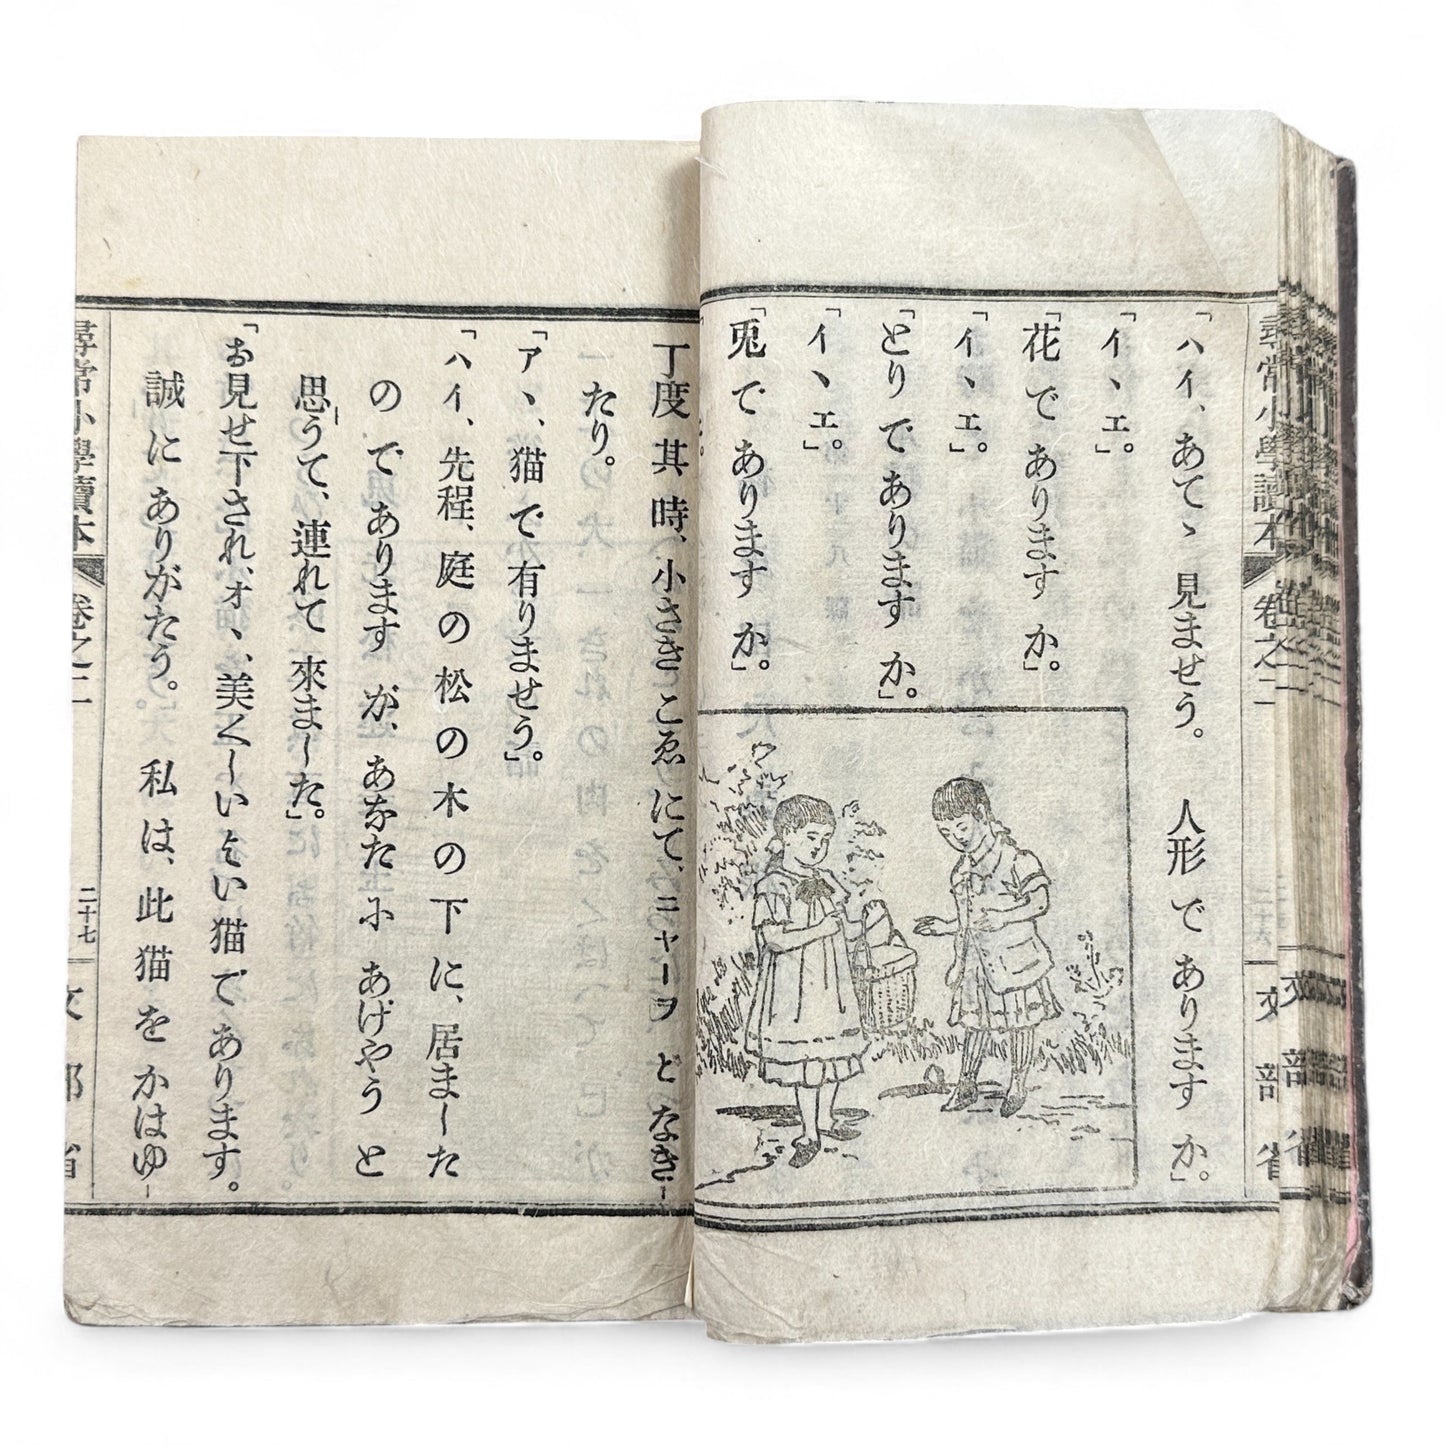 尋常小學讀本 卷之二 二十六 文部省
「ハイ、あてゝ見ませう。人形でありますか。」
「イヽエ。」
「花でありますか。」
「イヽエ。」
「とりでありますか。」
「イヽエ。」
「兎でありますか。」
丁度其時、小さきこゑにて、ニヤーヲとなき
たり。
「アヽ、猫で有りませう。」
「ハイ、先程、庭の松の木の下に、居ました
のでありますが、あなたにあげやうと
思うて、連れて來ました。」
「お見せ下され、オヽ、美くしいよい猫であります。
誠にありがたう。私は、此猫をかはゆ
尋常小學讀本 卷之二 二十七 文部省